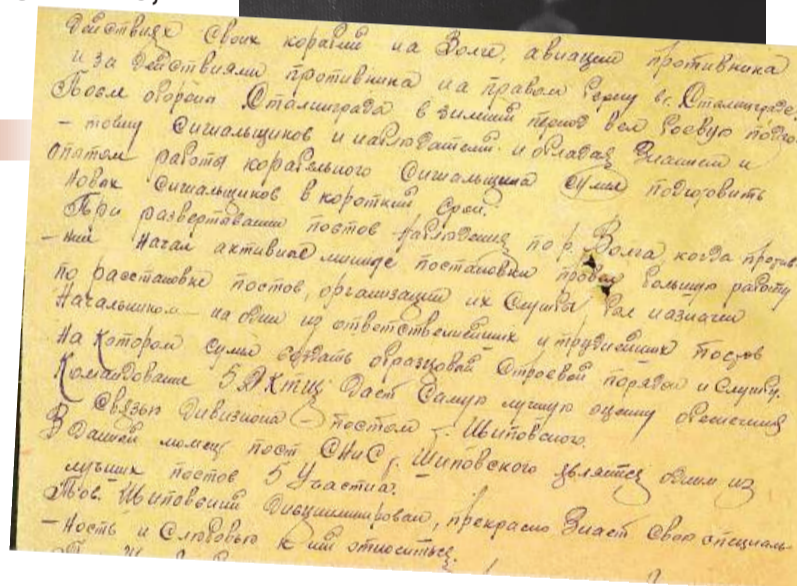 действиях своих кораблей на Волге, авиации противника
и за действиями противника на правом берегу в г. Сталинграде.
После обороны Сталинграда в зимний период вел боевую подго-
- товку сигнальщиков и наблюдателей и обладая знанием и
опытом работы корабельного сигнальщика сумел подготовить
новых сигнальщиков в короткий срок.
При развертывании постов наблюдения по р. Волга, когда против-
- ник начал активные минные постановки провел большую работу
по расстановке постов, организации их службы был назначен
Начальником на один из ответственнейших и труднейших постов
на котором сумел создать образцовый строевой порядок и службу.
Командование 5 ДКТЩ дает самую лучшую оценку обеспечения
связью дивизиона постом т. Шиповского.
В данный момент пост СНиС т. Шиповского является одним из
лучших постов 5 Участка.
Тов. Шиповский дисциплинирован, прекрасно знает свою специаль-
- ность и с любовью к ней относиться.